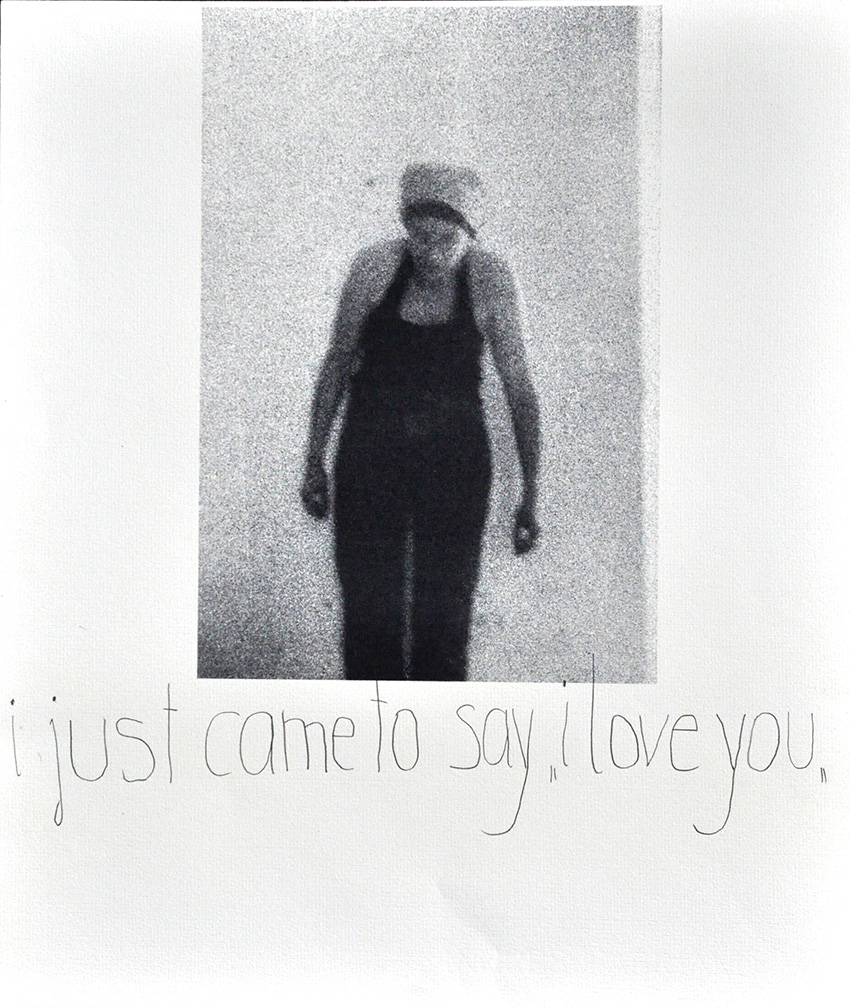 i just came to say „i love you„